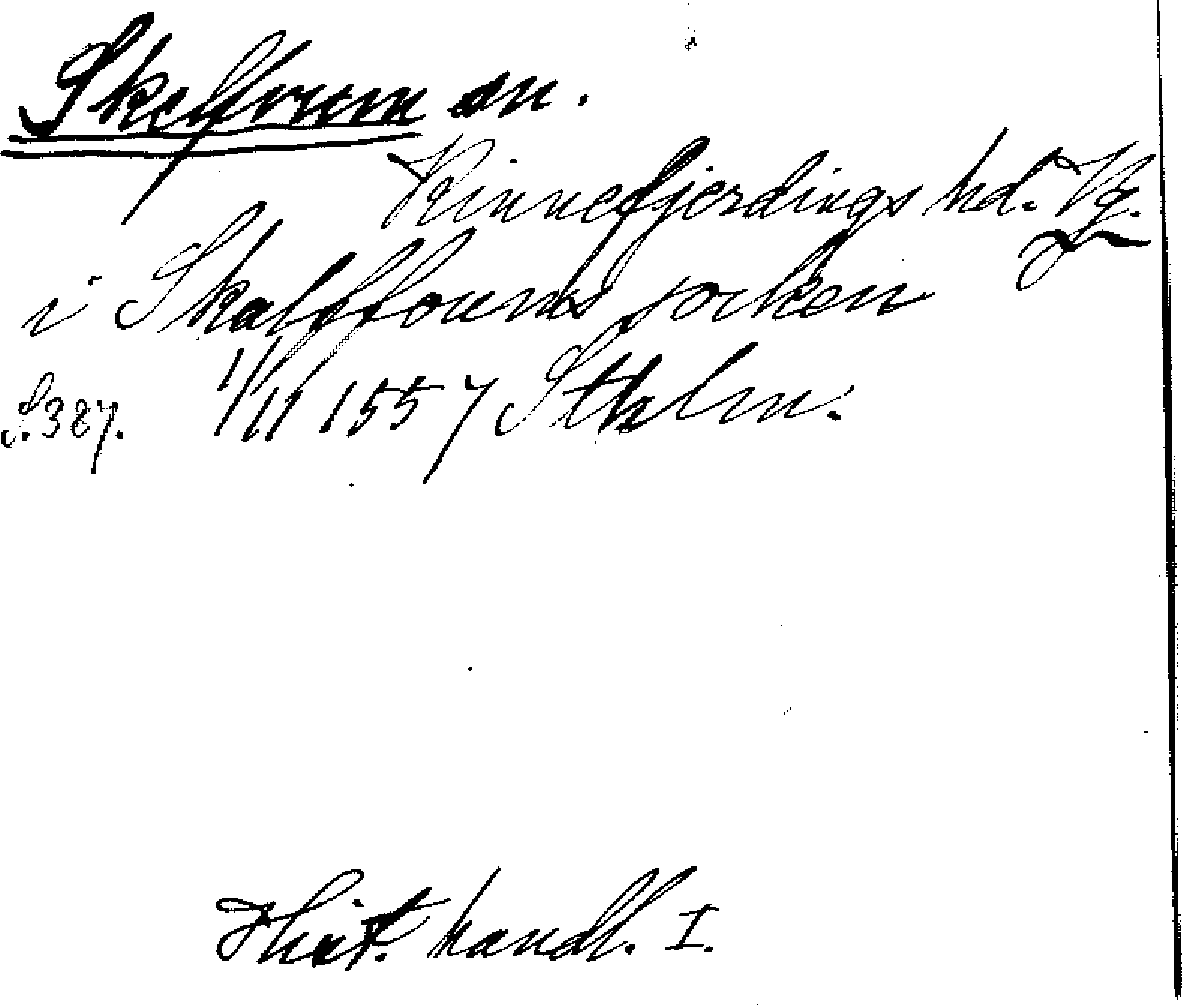 Skelfvum sn.
Kinnefjerdings hd. Vg.
i Skalffoums socken
S. 387. 1/11 1557 Sthlm.
Hist. handl. I.